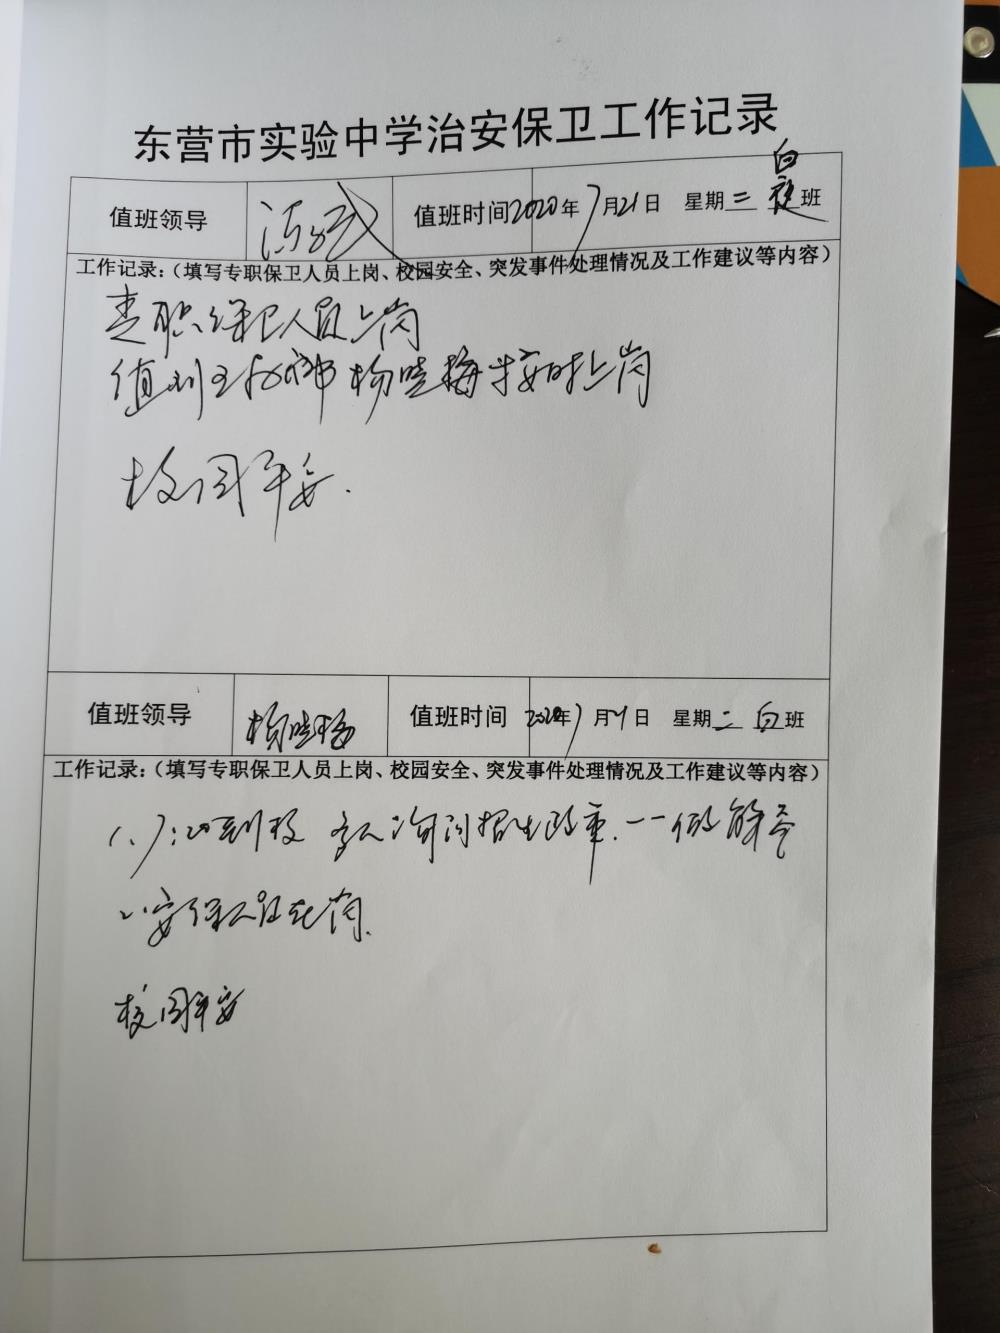 东营市实验中学治安保卫工作记录
值班领导 值班时间 2020年7月21日 星期二 白夜班
工作记录:(填写专职保卫人员上岗、校园安全、突发事件处理情况及工作建议等内容)
专职保卫人员上岗
值 杨晓梅按时上岗
校园平安.
值班领导 杨晓梅 值班时间 2020年7月21日 星期二 白班
工作记录:(填写专职保卫人员上岗、校园安全、突发事件处理情况及工作建议等内容)
1、7:20到校 家人询问招生政策.一一做解答
2、安保人员在岗.
校园平安